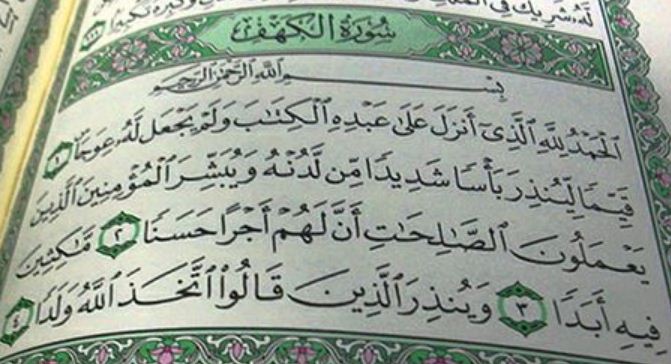 لَهُۥ شَرِيكٌ فِى ٱلْمُلْكِ
تَكْبِيرًا ١١١
سُورَةُ ٱلْكَهْفِ
بِسْمِ ٱللَّهِ ٱلرَّحْمَٰنِ ٱلرَّحِيمِ
ٱلْحَمْدُ لِلَّهِ ٱلَّذِىٓ أَنزَلَ عَلَىٰ عَبْدِهِ ٱلْكِتَٰبَ وَلَمْ يَجْعَل لَّهُۥ عِوَجَا ١
قَيِّمًا لِّيُنذِرَ بَأْسًا شَدِيدًا مِّن لَّدُنْهُ وَيُبَشِّرَ ٱلْمُؤْمِنِينَ ٱلَّذِينَ
يَعْمَلُونَ ٱلصَّٰلِحَٰتِ أَنَّ لَهُمْ أَجْرًا حَسَنًا ٢ مَّٰكِثِينَ
فِيهِ أَبَدًا ٣ وَيُنذِرَ ٱلَّذِينَ قَالُوا۟ ٱتَّخَذَ ٱللَّهُ وَلَدًا ٤